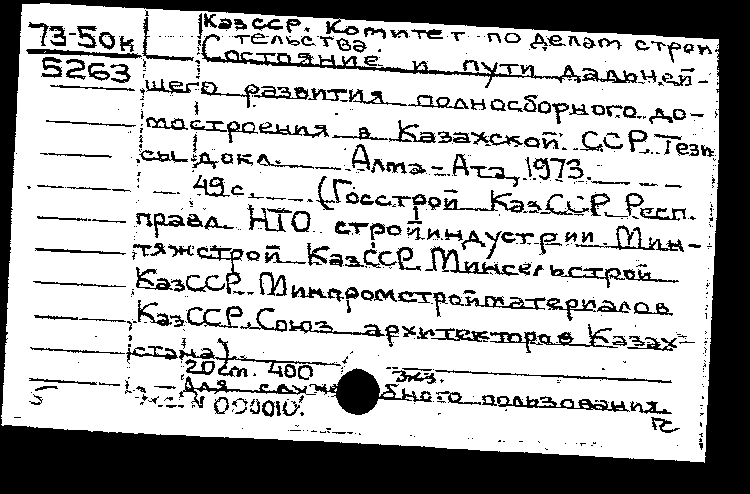 73-50к
5263
КазССР. Комитет по делам строи
тельства.
Состояние и пути дальней-
шего развития полносборного до-
мостроения в Казахской ССР. Тези
сы докл. Алма-Ата, 1973.
49 с. (Госстрой КазССР. Респ.
правл. НТО стройиндустрии. Мин-
тяжстрой КазССР. Минсельстрой
КазССР. Минпромстройматериалов
КазССР. Союз архитекторов Казах-
стана).
20 см. 400 экз.
Для служебного пользования.
Экз. N 000010.
б
гс